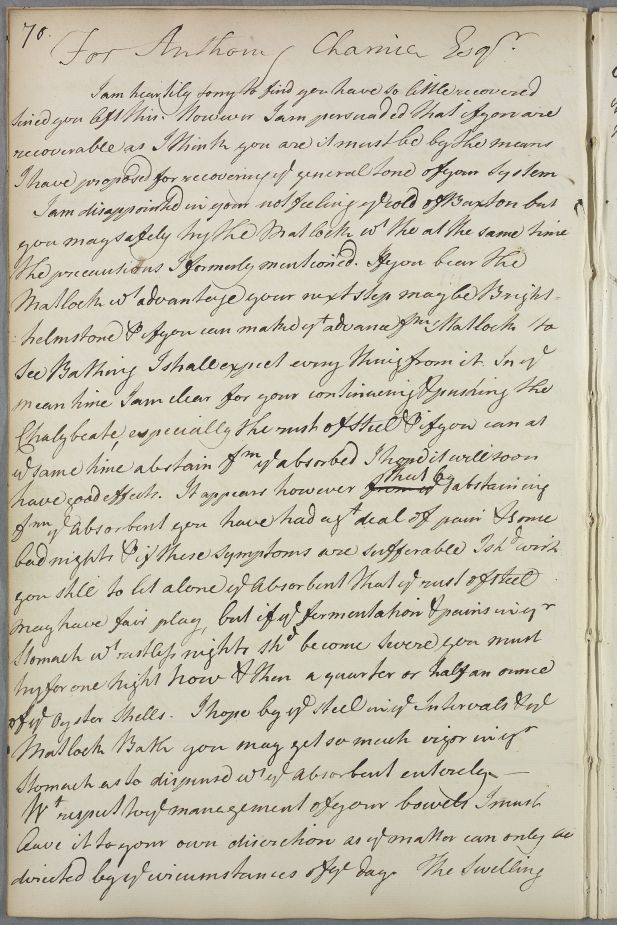 70.
For Anthony Chamier Esqr.
I am heartily sorry to find you have so little recovered
since you left this. However I am persuaded that if you are
recoverable as I think you are it must be by the means
I have proposed for recovering ye general tone of your system
I am disappointed in your not feeling ye cold of Buxton but
you may safely try the Matlock wt the at the same time
the precautions I formerly mentioned. If you bear the
Matlock wt advantage your next step may be Bright-
helmstone & if you can make yt advance fm Matlock to
Sea Bathing I shall expect every thing from it. In ye
mean time I am clear for your continuing & pushing the
Chalybeate, especially the rust of steel & if you can at
ye same time abstain fm ye absorbed I hope it will soon
have good effects. It appears however that by abstaining
fm ye Absorbent you have had a gt deal of pain & some
bad nights & if these symptoms are sufferable I shd wish
you still to let alone ye Absorbent that ye rust of steel
may have fair play, but if ye fermentation & pains in yr
Stomach wt restless nights shd become severe you must
try for one night now & then a quarter or half an ounce
of ye Oyster Shells. I hope by ye steel in ye Intervals & ye
Matlock Bath you may get so much vigor in yr
Stomach as to dispense wt ye absorbent entirely —
Wt respect to ye management of your bowels I must
leave it to your own discretion as ye matter can only be
directed by ye circumstances of ye day. The Swelling